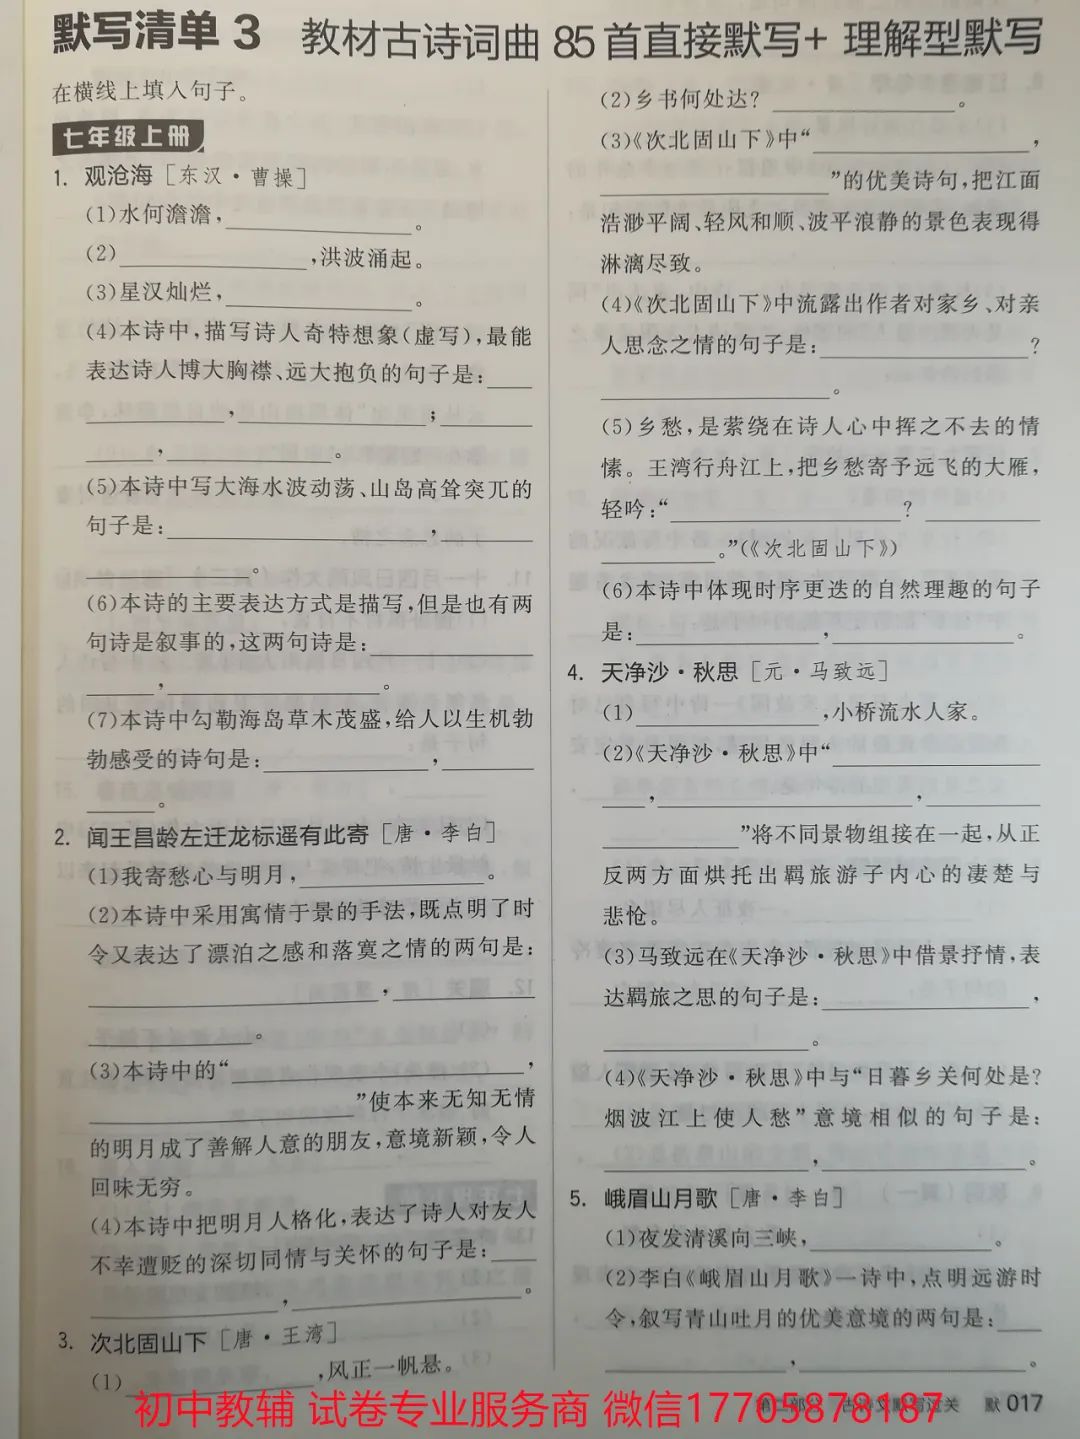 默写清单 3 教材古诗词曲 85 首直接默写+ 理解型默写
在横线上填入句子。
七年级上册
1. 观沧海[东汉·曹操]
(1)水何澹澹,____________。
(2)____________,洪波涌起。
(3)星汉灿烂,____________。
(4)本诗中,描写诗人奇特想象(虚写),最能
表达诗人博大胸襟、远大抱负的句子是:____
____________,____________;________
______,____________。
(5)本诗中写大海水波动荡、山岛高耸突兀的
句子是:____________,________
____________。
(6)本诗的主要表达方式是描写,但是也有两
句诗是叙事的,这两句诗是:____________
______,____________。
(7)本诗中勾勒海岛草木茂盛,给人以生机勃
勃感受的诗句是:____________,________
______。
2. 闻王昌龄左迁龙标遥有此寄[唐·李白]
(1)我寄愁心与明月,____________。
(2)本诗中采用寓情于景的手法,既点明了时
令又表达了漂泊之感和落寞之情的两句是:
____________,________
____________。
(3)本诗中的“____________,
____________”使本来无知无情
的明月成了善解人意的朋友,意境新颖,令人
回味无穷。
(4)本诗中把明月人格化,表达了诗人对友人
不幸遭贬的深切同情与关怀的句子是:____
____________,____________。
3. 次北固山下[唐·王湾]
(1)____________,风正一帆悬。
(2)乡书何处达? ____________。
(3)《次北固山下》中“____________,
____________”的优美诗句,把江面
浩渺平阔、轻风和顺、波平浪静的景色表现得
淋漓尽致。
(4)《次北固山下》中流露出作者对家乡、对亲
人思念之情的句子是:____________?
____________。
(5)乡愁,是萦绕在诗人心中挥之不去的情
愫。王湾行舟江上,把乡愁寄予远飞的大雁,
轻吟:“____________? ________
________。”(《次北固山下》)
(6)本诗中体现时序更迭的自然理趣的句子
是:____________,____________。
4. 天净沙·秋思[元·马致远]
(1)____________,小桥流水人家。
(2)《天净沙·秋思》中“____________
____,____________,________
________”将不同景物组接在一起,从正
反两方面烘托出羁旅游子内心的凄楚与
悲怆。
(3)马致远在《天净沙·秋思》中借景抒情,表
达羁旅之思的句子是:____________,
____________。
(4)《天净沙·秋思》中与“日暮乡关何处是?
烟波江上使人愁”意境相似的句子是:
____________,____________。
5. 峨眉山月歌[唐·李白]
(1)夜发清溪向三峡,____________。
(2)李白《峨眉山月歌》一诗中,点明远游时
令,叙写青山吐月的优美意境的两句是:____
____________,____________。
第二部分 古诗文默写过关 默 017
初中教辅 试卷专业服务商 微信17705878187